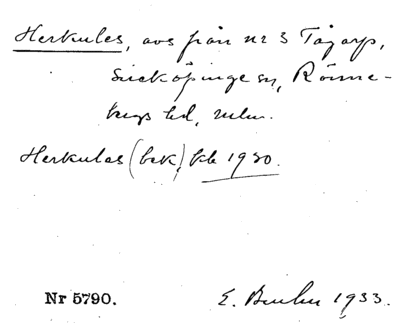 Herkules, avs från nr 3 Tågarp,
Simköpinge sn, Rönne-
bergs hd, mlm.
Herkulas (bek), kb 1930.
Nr 5790. E. 1933.